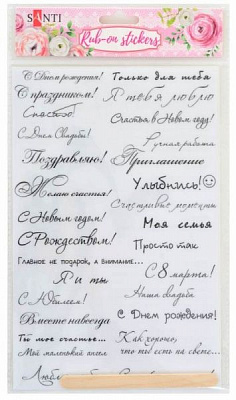 SANTI
Rub-on stickers
С Днем рождения!
Только для тебя
С праздником!
Я тебя люблю
Спасибо!
Счастья в Новом году!
С Днем Свадьбы!
Ручная работа
Поздравляю!
Приглашение
Желаю счастья!
Улыбнись!
Счастливые моменты
С Новым годом!
Моя семья
С Рождеством!
Просто так
Главное не подарок, а внимание...
Я и ты
С 8 марта!
С Юбилеем!
Наша свадьба
Вместе навсегда
С Днем рождения!
Ты мое счастье...
Как хорошо,
Мой маленький ангел
что ты есть на свете...